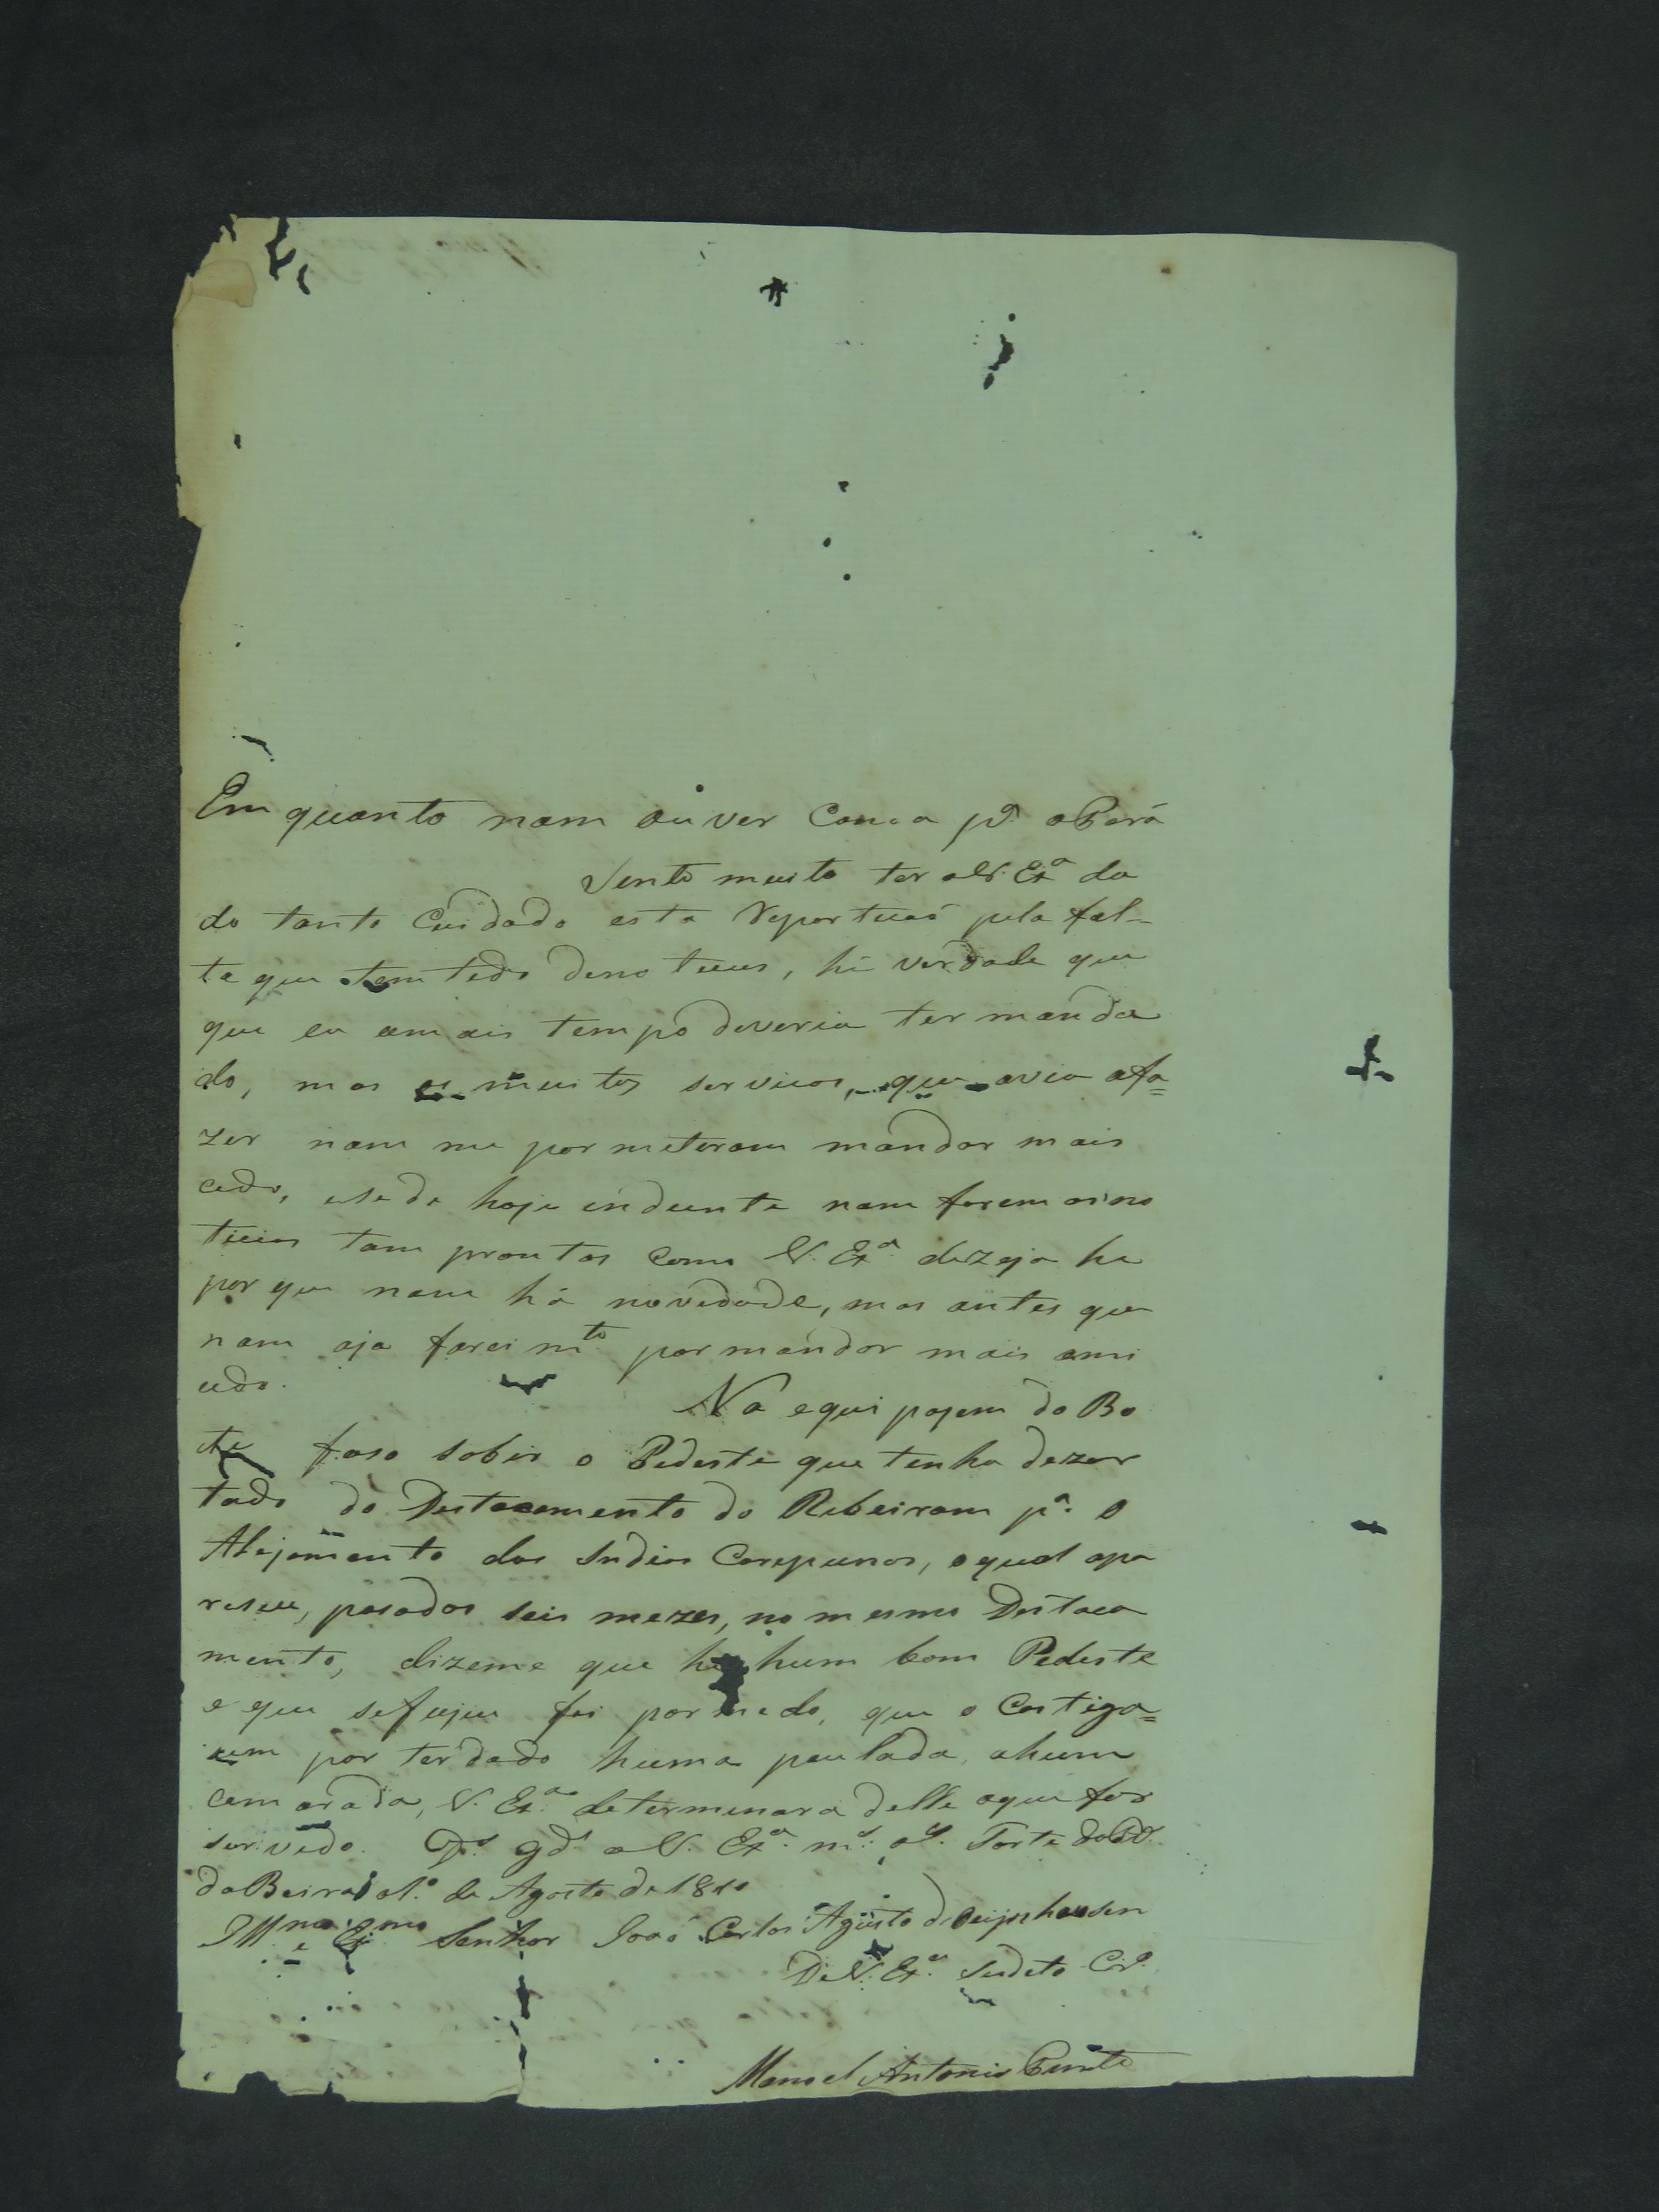 Em quanto nam ouver Canoa pª. o Pará
Sento muito ter a V. Exª da
do tanto Cuidado esta Repartiçaõ pela fal-
ta que tem tido de noticias, hé verdade que
que eu a mais tempo deveria ter manda
do, mas os muitos serviços, que avia a fa=
zer nam me permeteram mandar mais
cedo, e se de hoje endiente nam forem as no
ticias tam prontas como V. Exª. dezeja he
por que nam há novedade, mas antes que
nam aja farei mto. por mandar mais ami
udo.
Na equipajem do Bo
te faso sobir o Pedeste que tenha dezer
tado do Destacamento do Ribeiram pª. o
Alojamento dos Indios Caripunas, o qual apa
reseu, pasados seis mezes, no mesmo Destaca
mento, dizeme que he hum bom Pedeste
e que se fujiu foi por medo, que o Castiga=
sem por ter dado huma paulada, a hum
camarada, V. Exª. determinará delle o que for
servido. Ds. gde. a V. Exª. ms. as. Forte do Pe.
da Beira 1º. de Agosto de 1810
Illmo. e Exmo. Senhor Joaõ Carlos Agusto d'Oeijnhausen
De V. Exª. Sudeto Cdo.
Manoel Antonio